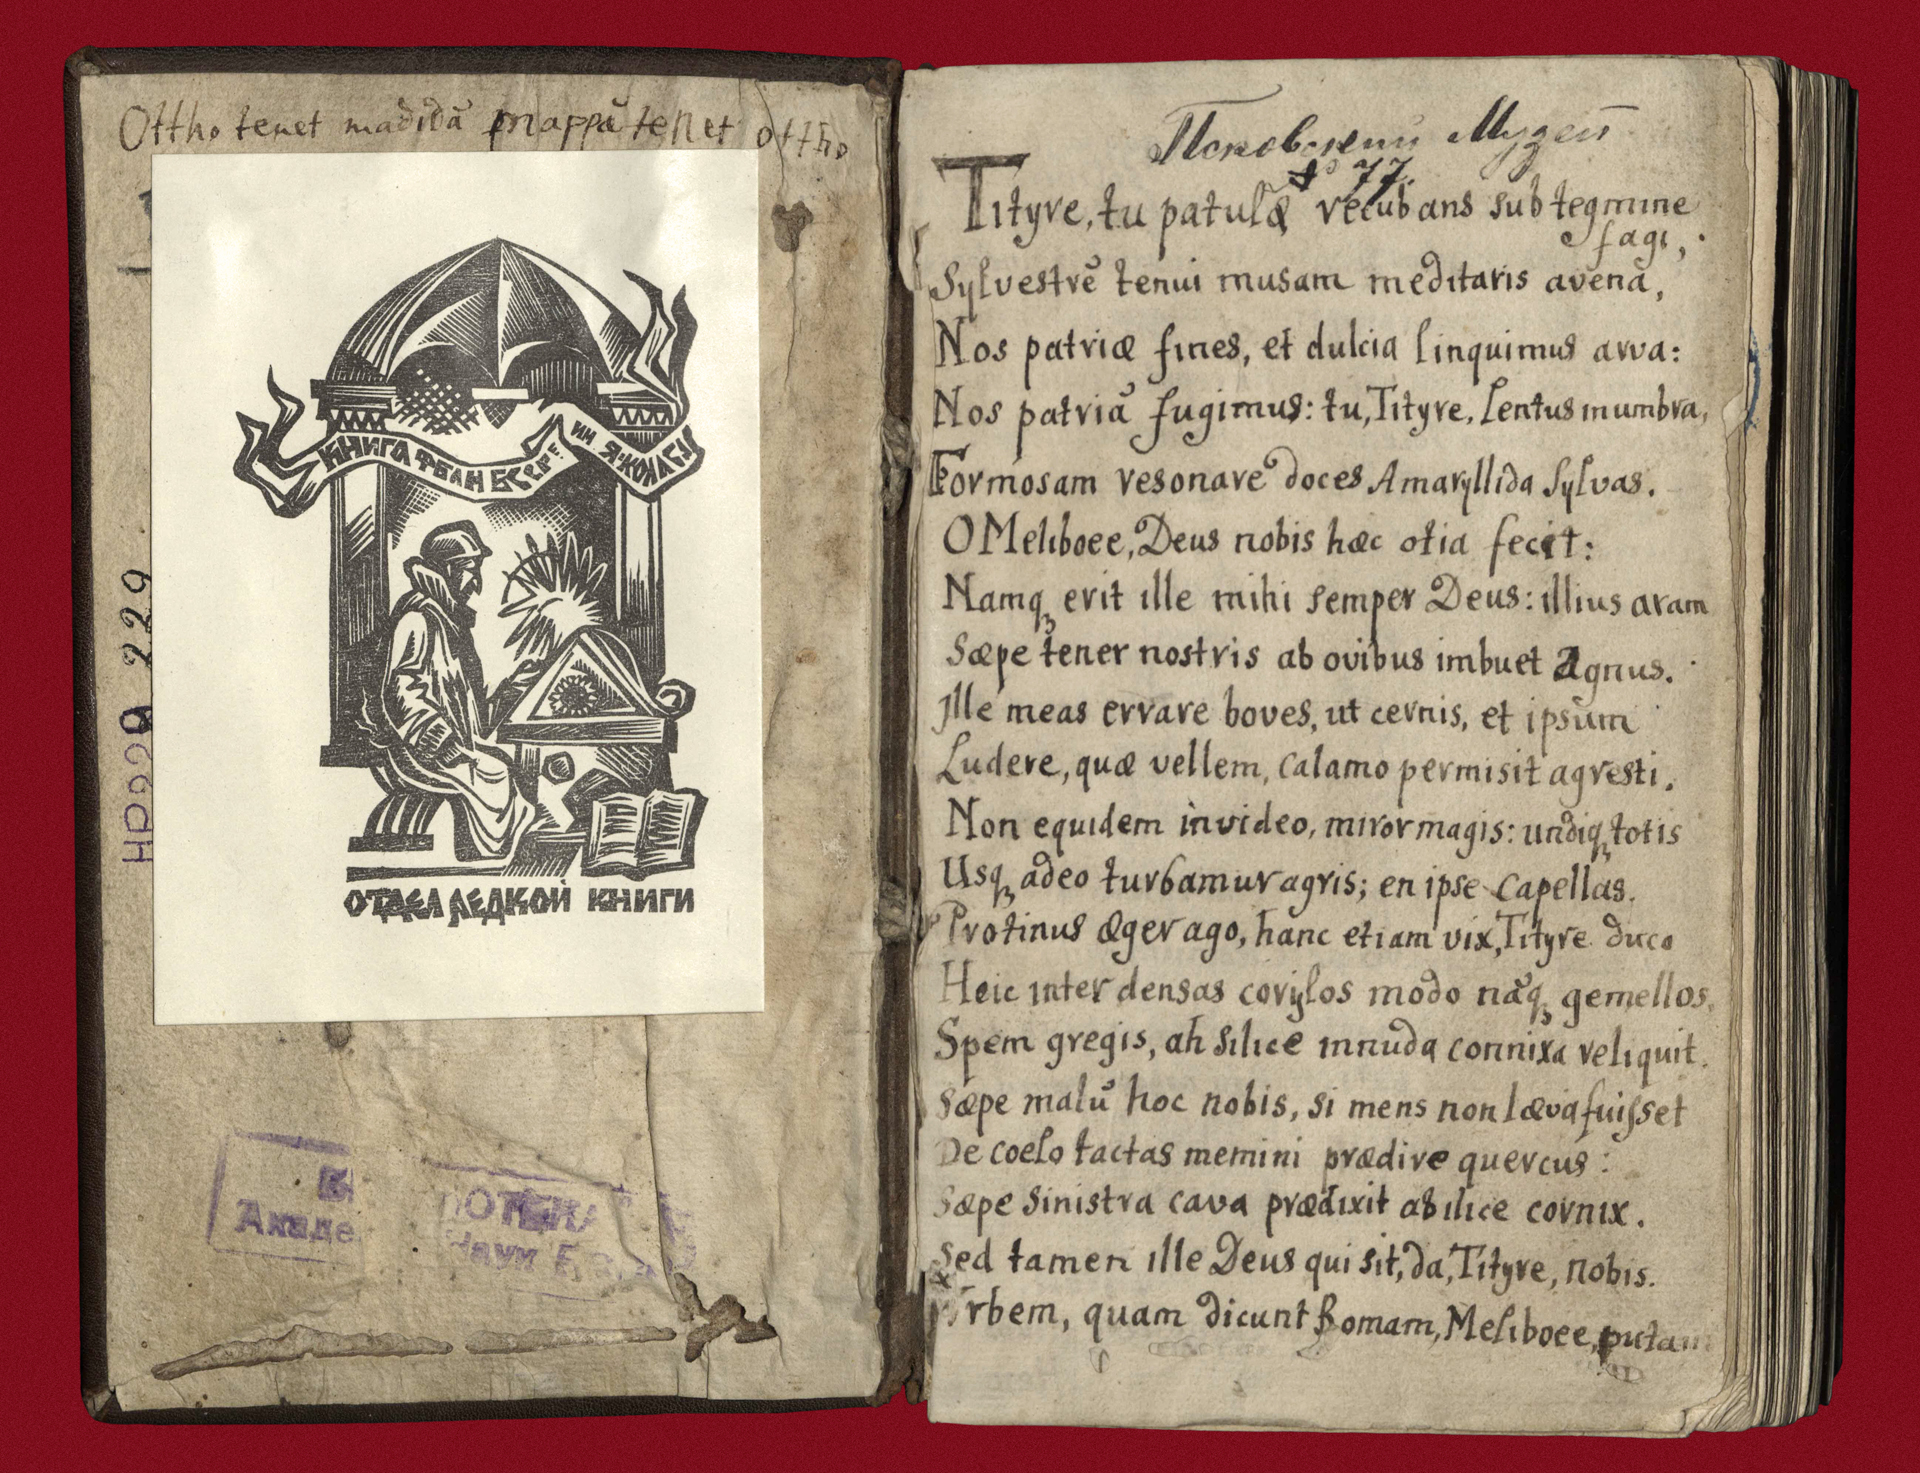 Ottho tenet madidā mappā tenet ottho
КНИГА ФБАН БССР ИМ Я. КОЛАСА
ОТДЕЛ РЕДКОЙ КНИГИ
НР229 229
Акаде
Наук Б
Псковскій Музей
№ 77.
Tityre, tu patulæ recubans sub tegmine
fagi,
Sylvestrē tenui musam meditaris avenā,
Nos patriæ fines, et dulcia linquimus arva:
Nos patriā fugimus: tu, Tityre, lentus in umbra,
Formosam resonare doces Amaryllida Sylvas.
O Meliboee, Deus nobis hæc otia fecit:
Namq; erit ille mihi semper Deus: illius aram
Sæpe tener nostris ab ovibus imbuet Agnus.
Ille meas errare boves, ut cernis, et ipsum
Ludere, quæ vellem, calamo permisit agresti.
Non equidem invideo, miror magis: undiq; totis
Usq; adeo turbamur agris; en ipse capellas.
Protinus æger ago, hanc etiam vix, Tityre duco
Heic inter densas corylos modo nāq; gemellos,
Spem gregis, ah silice in nuda connixa reliquit.
Sæpe malū hoc nobis, si mens non læva fuisset
De coelo tactas memini prædire quercus:
Sæpe sinistra cava prædixit ab ilice cornix.
Sed tamen ille Deus qui sit, da, Tityre, nobis.
Urbem, quam dicunt Romam, Meliboee, putavi